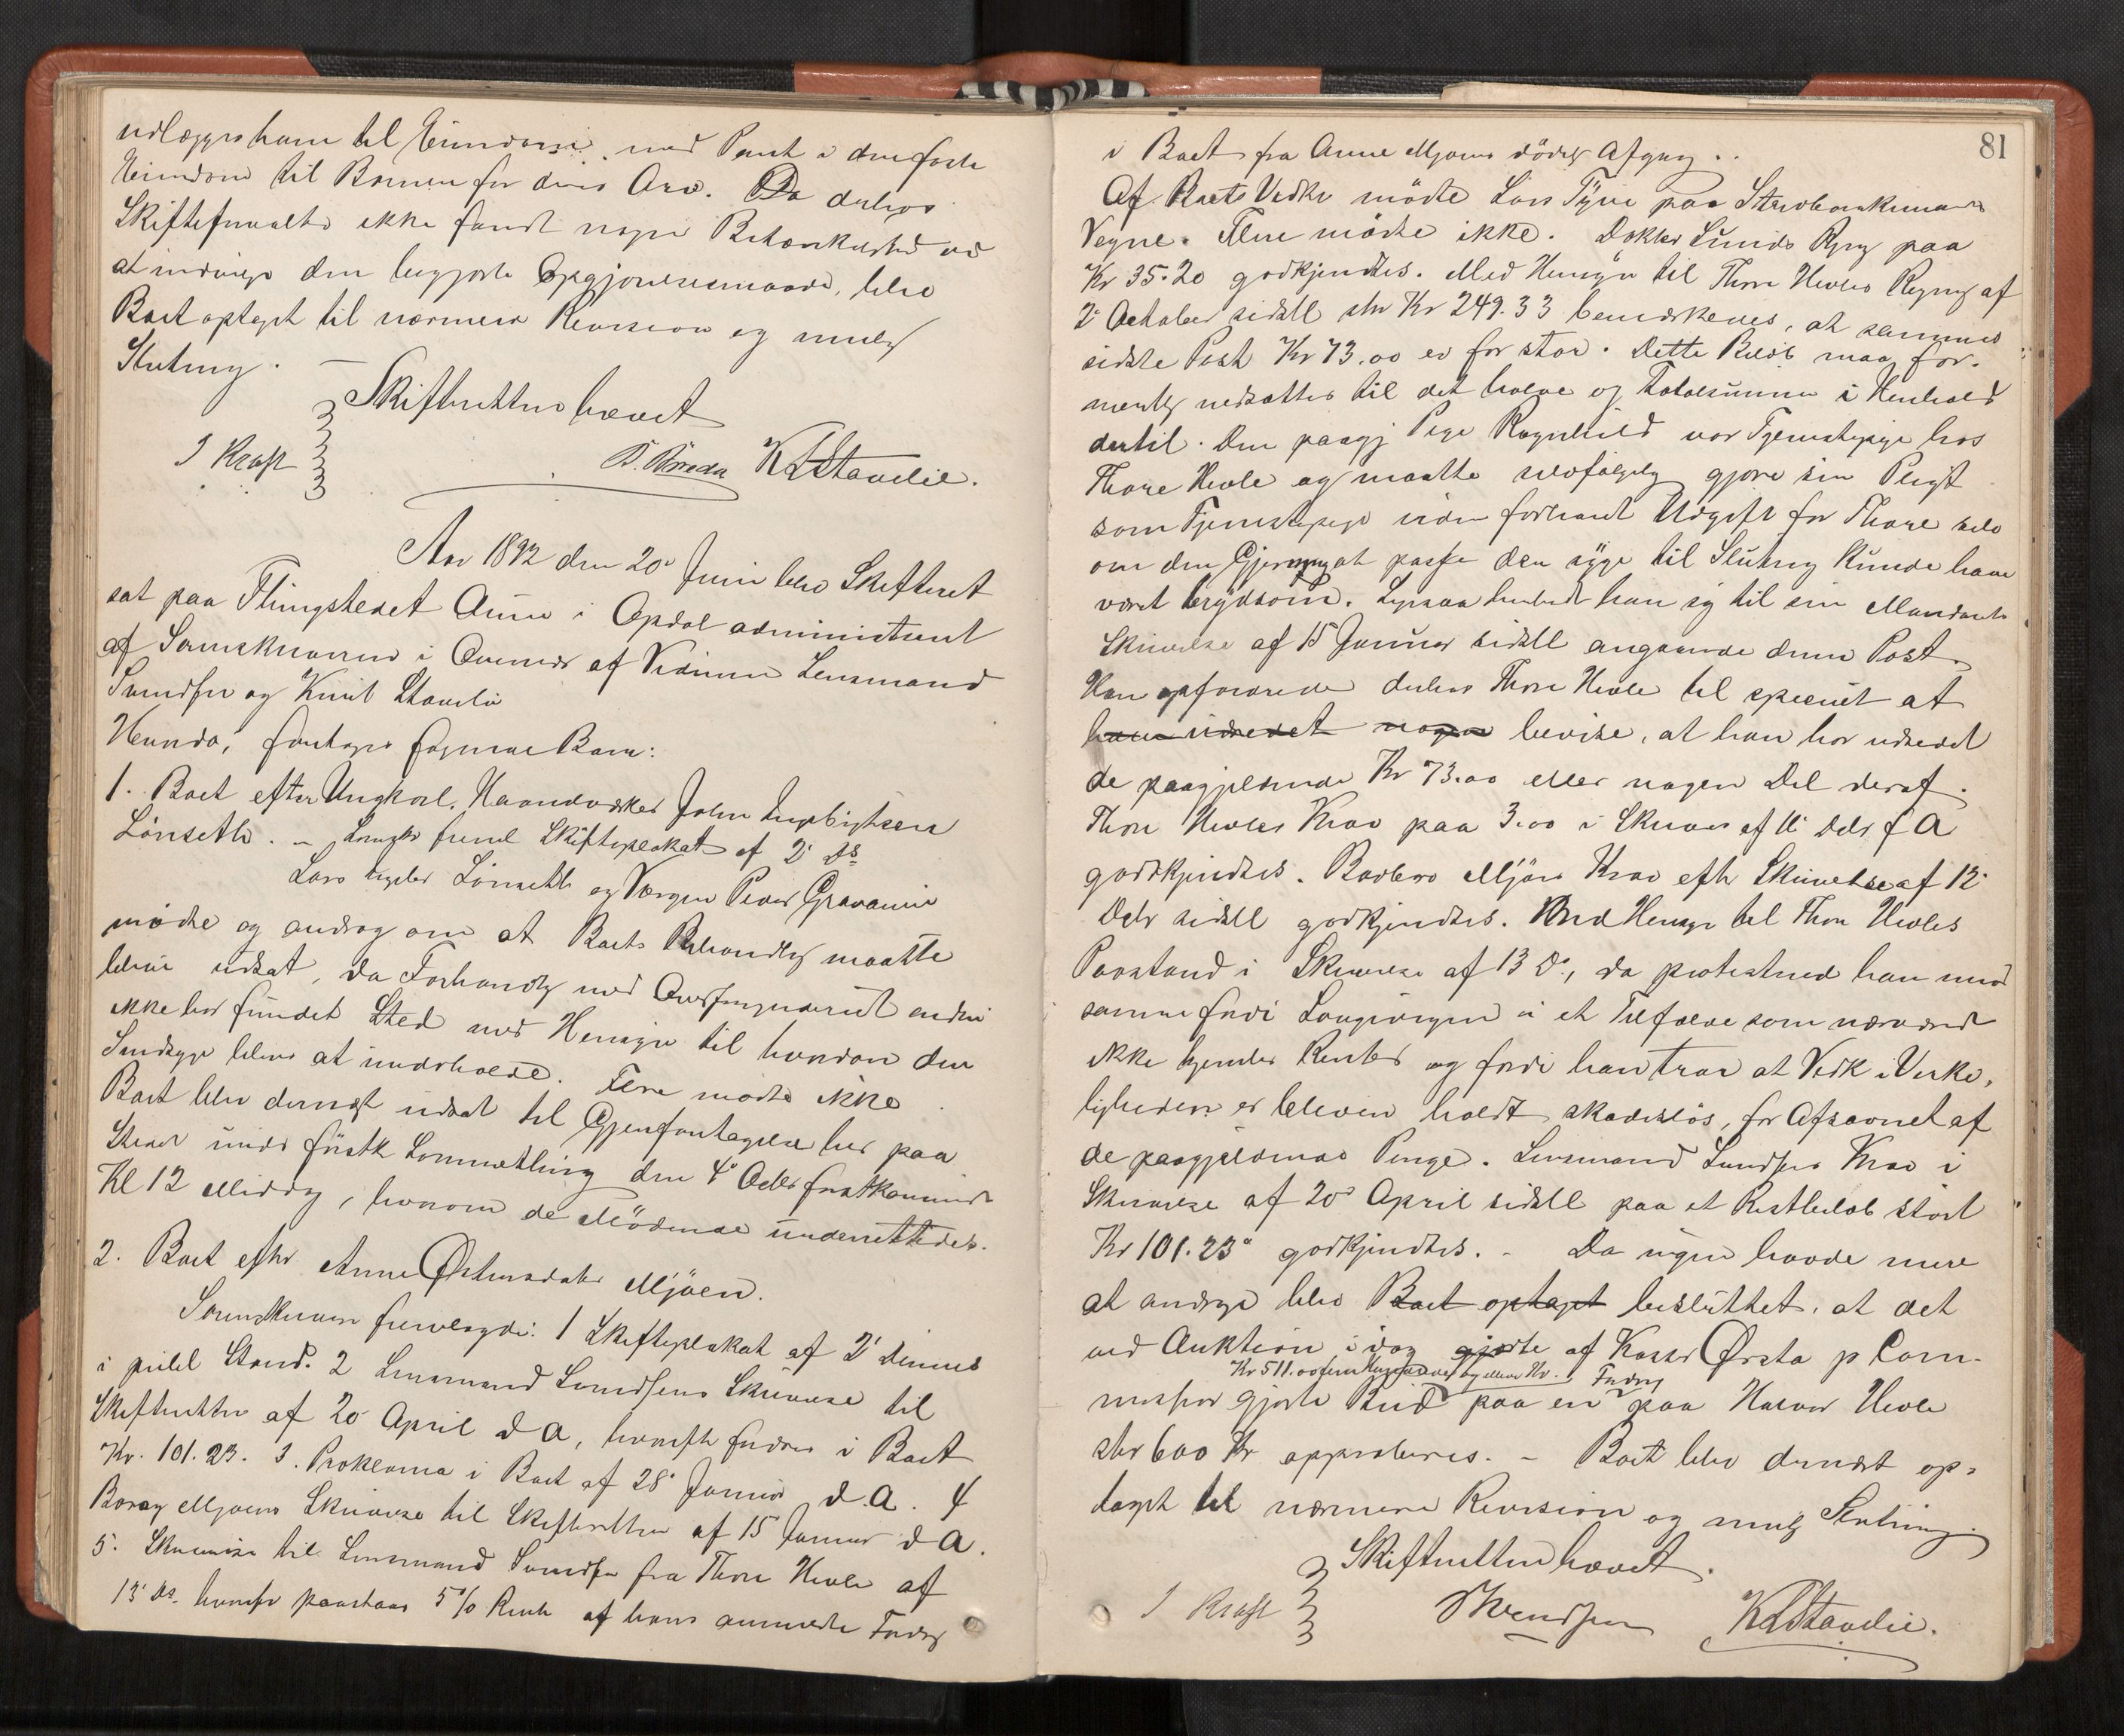 udlægges ham til Eiendom med Pant i den faste
Eiendom til Børnene for deres Arv. Da derhos
Skifteforvalter ikke fandt nogen Betænkelighed ved
at indvilge den begjærte Opgjørelsesmaade, blev
Boet optaget til nærmere Revision og mulig
Slutning. —
Skifteretten hævet
J Kraft
Bræda K Stavelie.
Aar 1892 den 20de Juni blev Skifteret
sat paa Thingstedet Aune i Opdal administreret
af Sorenskriveren i Overvær af Vidnerne Lensmand
Svendsen og Knut Stavelie
Hvorda, foretages følgende Boer:
1. Boet efter Ungkarl, Haandværker John Ingebrigtsen
Lönseth. – freml Skifteplakat af 2' ds
Lars Lönseth og Værgen Peder Gravaune
mødte og androg om at Boets Behandling maatte
blive udsat, da Forhandlg med endnu
ikke har fundet Sted med Hensyn til hvordan den
Sindsyge bliver at underholde. Flere mødte ikke
Boet blev dernæst udsat til Gjenforetagelse her paa
Stedet under förstk Sommerthing den 4de Octbr förstkommende
Kl 12 Middag, hvorom de Mödende underrettedes.
2. Boet efter Anne Østensdatter Mjöen.
Sorenskriveren fremlagde: 1 Skifteplakat af 2' dennes
i publ Stand. 2 Lensmand Svendsens Skrivelse til
Skifteretten af 20 April d A, hvorefter fordres i Boet
Kr. 101.23. 3. Proklama i Boet af 28' Januar d.A. 4
Mjoens Skrivelse til Skifteretten af 15 Januar d A.
5. Skrivelse til Lensmand Svendsen fra Thore Hevle af
13' ds. hvorefter paastaaes 5% Rente af hans anmeldte Fordrg
81
i Boet fra Anne Mjoens dödes Afgang..
Af Boets Vedk mödte Lars paa
Vegne. Flere mödte ikke. Dokter Regng paa
Kr 35.20 godkjendtes. Med Hensyn til Thore Hevles Regning af
2' October sidstl stor Kr 249.33 bemærkedes, at sammes
sidste Post Kr 73.00 er for stor. Dette Belöb maa for-
mentlig nedsættes til det halve og Totalsummen i Henhold
dertil. Den paagj Pige Ragnhild var Tjenestepige hos
Thore Hevle og maatte selvfølgelig gjöre sin Pligt
som Tjenestepige uden forhøiet Udgift for Thore selv
om den Gjerning at passe den syge til Slutng kunde have
været brydsom. Ligesaa henholdt han sig til sin Mandants
Skrivelse af 15 Januar sidstl angaaende denne Post.
Han opfordrede derhos Thore Hevle til specielt at
han udredet nogen bevise, at han har udredet
de paagjeldende Kr 73.00 eller nogen Del deraf.
Thore Hevles Krav paa 3.00 i Skrivelse af 11' Debr f A
godkjendtes. Barbro Mjöens Krav efter Skrivelse af 12'
Debr sidstl godkjendtes. Med Hensyn til Thore Hevles
Paastand i Skrivelse af 13 ds., da protesterede han mod
samme fordi Lovgivingen i et Tilfælde som nærværende
ikke hjemler Renter og fordi han tror at Vedk i Virke-
ligheden er bleven holdt skadeslös, for Afsavnet af
de paagjeldende Penge. Lensmand Svendsens Krav i
Skrivelse af 20' April sidstl paa et Restbelöb stort
Kr 101.23 godkjendtes. – Da ingen havde mere
at andrage blev Boet optaget besluttet, at det
ved Auktion i dag gjorte af Kasser Ørsta p Com-
Kr 511.00 Fordrg
mission gjorte Bud paa en paa Halvor Hevle
stor 600 Kr approberes. – Boet blev dernæst op-
taget til nærmere Revision og mulg Slutning.
Skifteretten hævet.
J Kraft
Svendsen K Stavelie.